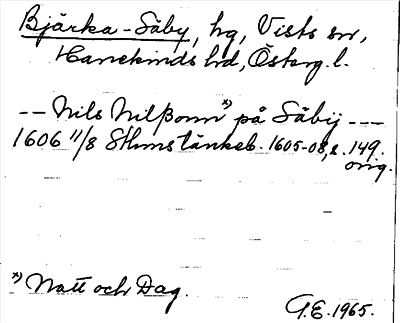 Bjärka-Säby, hg, Vists sn,
Hanekinds hd, Österg. l.
-- Nils Nilßonn x) på Säbij ---
1606 11/8 Sthms tänkeb. 1605-08, s. 149.
orig.
x) Natt och Dag.
G.E. 1965.